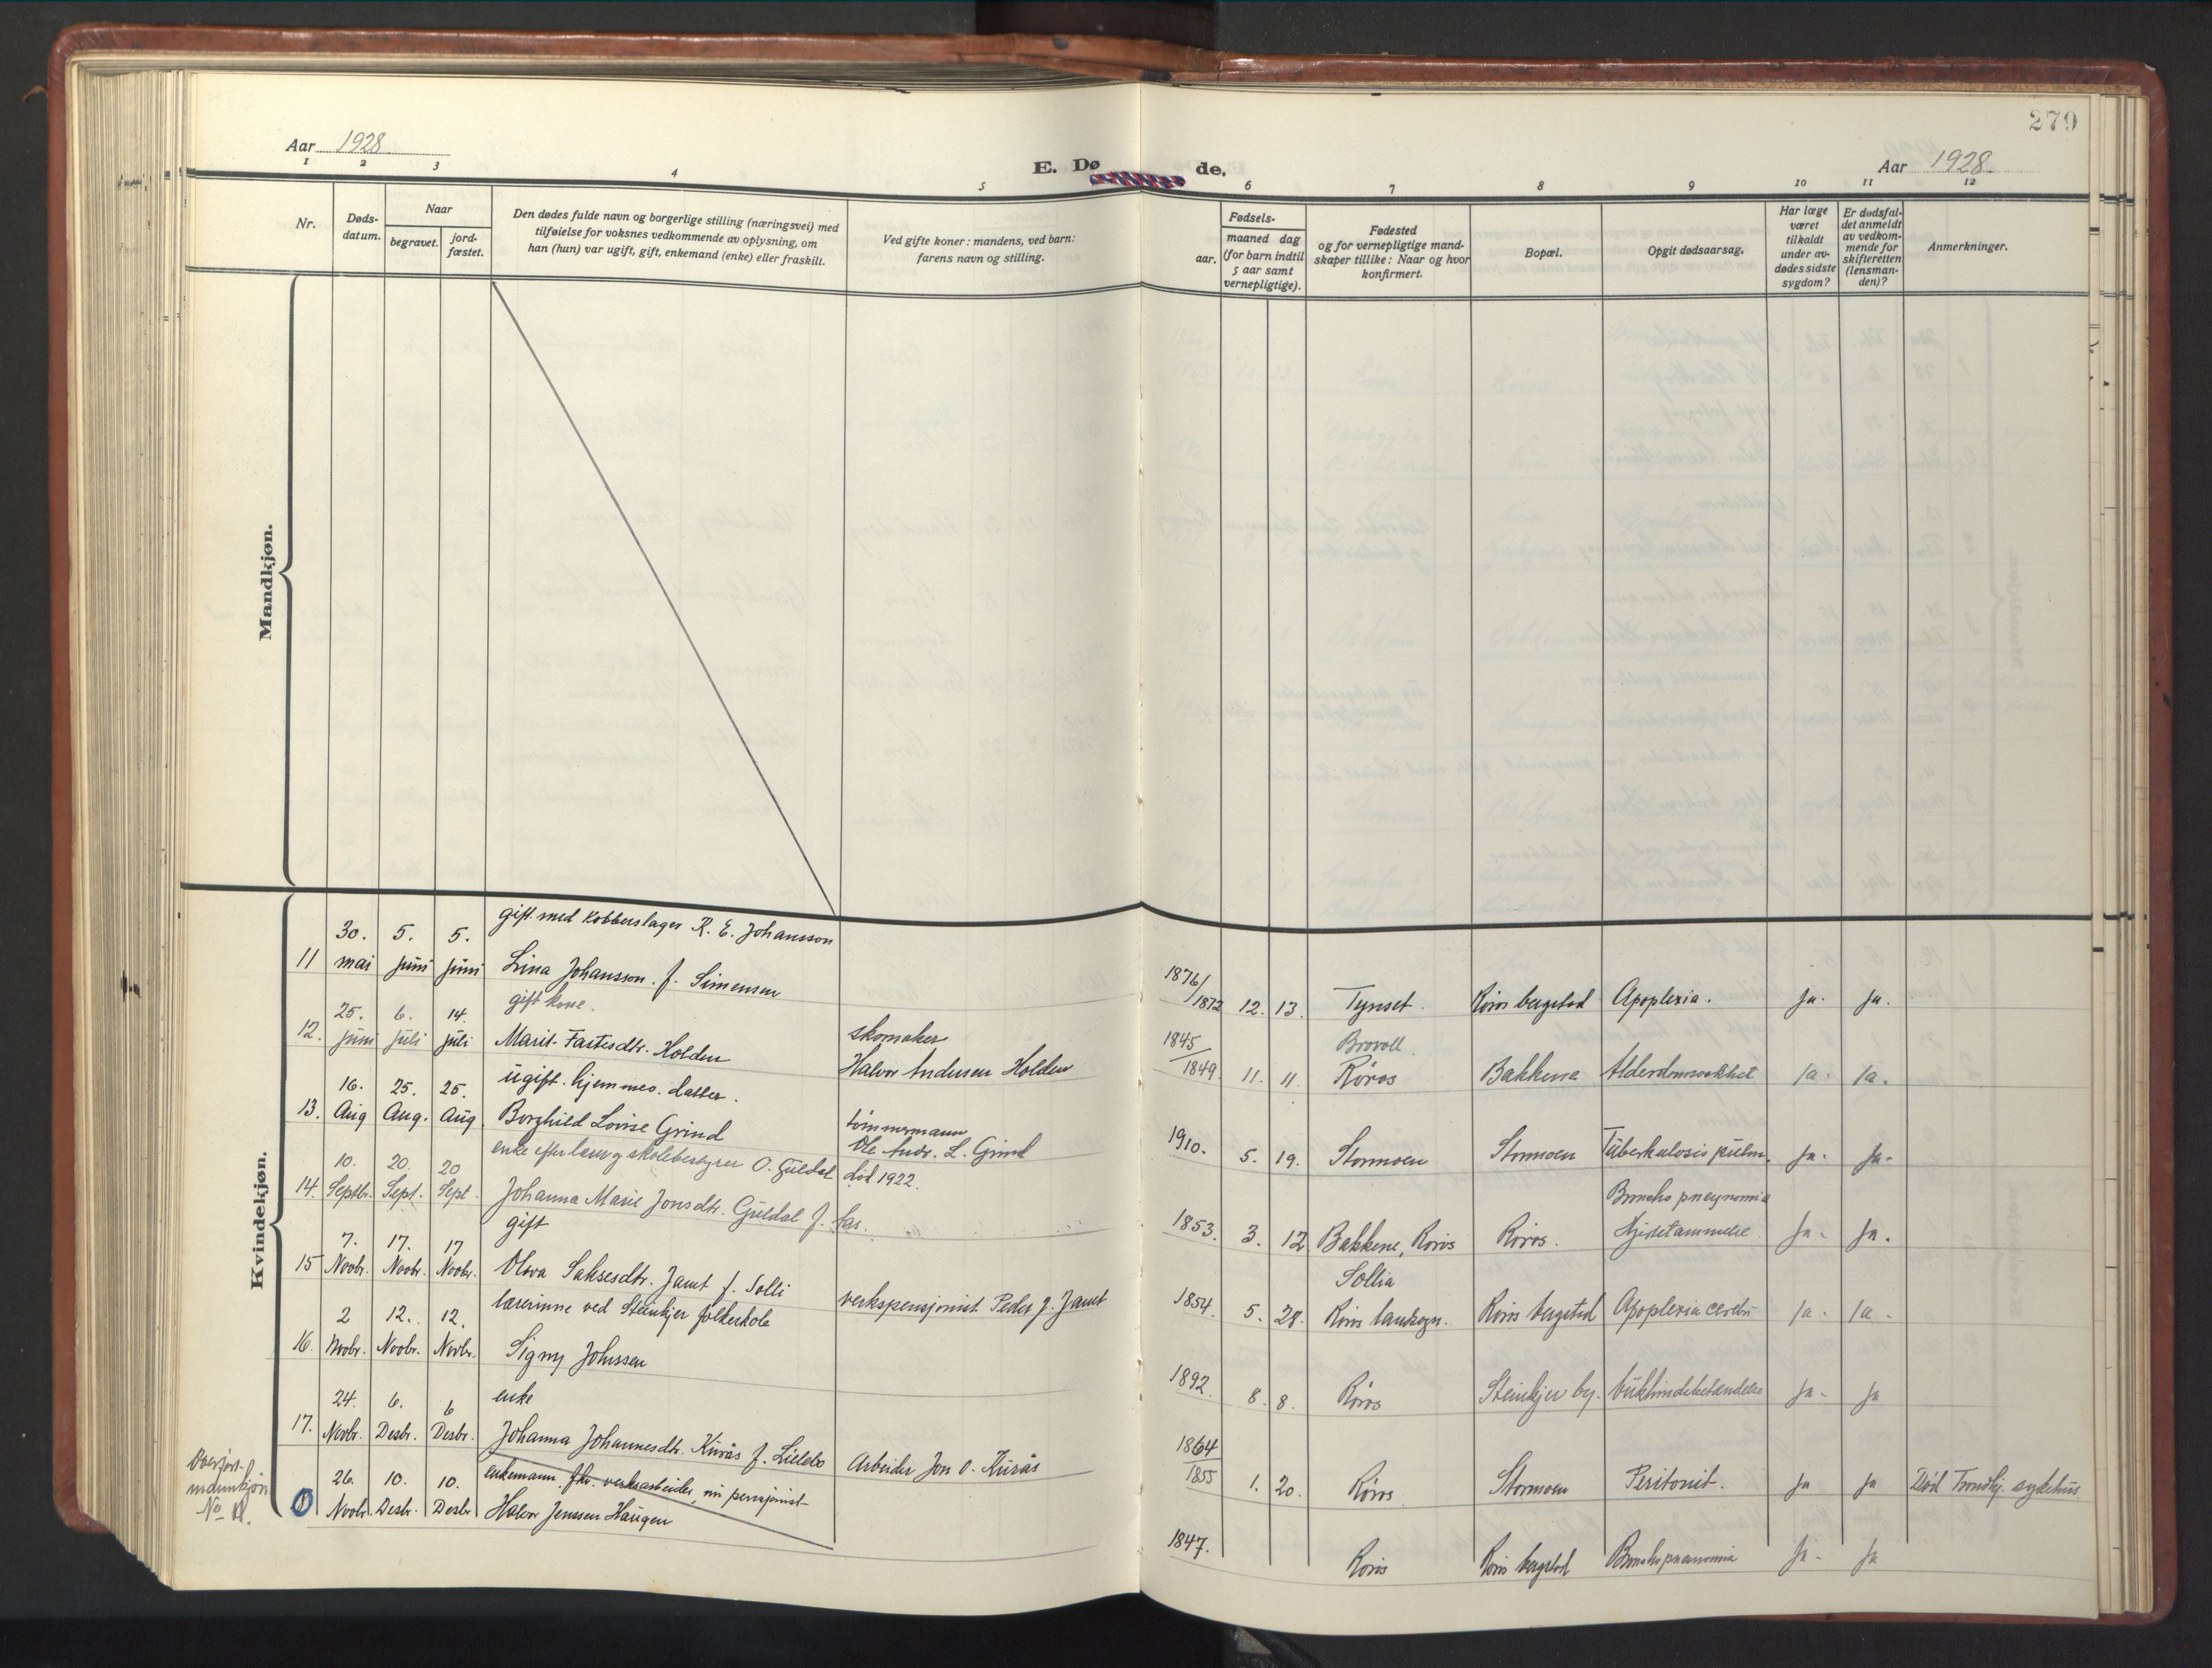 279
Aar 1928
E. Dø de.
Aar 1928
1 2 3 4 5 6 7 8 9 10 11 12
Nr.
Døds-
datum.
Naar
begravet.
jord-
fæstet.
Den dødes fulde navn og borgerlige stilling (næringsvei) med
tilføielse for voksnes vedkommende av oplysning, om
han (hun) var ugift, gift, enkemand (enke) eller fraskilt.
Ved gifte koner: mandens, ved barn:
farens navn og stilling.
Fødsels-
aar.
maaned dag
(for barn indtil
5 aar samt
vernepligtige).
Fødested
og for vernepligtige mand-
skaper tillike: Naar og hvor
konfirmert.
Bopæl.
Opgit dødsaarsag.
Har læge
været
tilkaldt
under av-
dødes sidste
sygdom?
Er dødsfal-
det anmeldt
av vedkom-
mende for
skifteretten
(lensman-
den)?
Anmerkninger.
Mandkjøn.
Kvindekjøn.
gift med Kobberslager R. E. Johansson
11 30. mai 5. juni 5. juni Lina Johansson. f. Simensen
1876/1872 12. 13. Tynset. Røros bergstad Apoplexia. Ja. Ja.
gift kone.
12. 25. juni 6. juli 14. juli Marit Fastesdtr. Holden
skomaker
Halvor Andersen Holden
1845/1849. 11. 11. Brovoll. Røros Bakkene Alderdomssvakhet Ja. Ja.
ugift. hjemmev. datter.
13. 16. Aug 25. Aug. 25. Aug. Borghild Lovise Grind
tømmermann
Ole Andr. L. Grind
1910. 5. 19. Stormoen Stormoen Tuberkulosis pulm. Ja. Ja.
enke efter lærer og skolebestyrer O. Guldal død 1922.
14. 10. Septbr. 20. Sept. 20 Sept. Johanna Marie Jonsdtr. Guldal f.
1853. 3. 12 Bakkene, Røros Røros. Broncho pneynomia
Hjertelammelse Ja. Ja.
gift
15 7. Novbr. 17. Novbr. 17 Novbr. Olova Saksesdtr. Jamt f. Solli
verkspensjonist Peder J. Jamt
1854. 5. 28. Sollia
Røros landsogn. Røros bergstad Apoplexia cerebri Ja. Ja.
lærerinne ved Steinkjer folkeskole
16. 2 Novbr. 12. Novbr. 12. Novbr. Signy Johnssen
1892. 8. 8. Røros Steinkjer by. Ja. Ja
enke
17. 24. Novbr. 6. Desbr. 6 Desbr. Johanna Johannesdtr. Kurås f. Lillebo
Arbeider Jon O. Kurås
1864/1855 1. 20. Røros Stormoen Peritonit. Ja Ja Død Trondhj. sykehus
Overført
mannkjøn
No
26. Novbr. 10. Desbr. 10. Desbr enkemann, fhv. verksarbeider, nu pensjonist
Halvor Jenssen Haugen
1847. Røros Røros bergstad Bronchopneumonia Ja. Ja